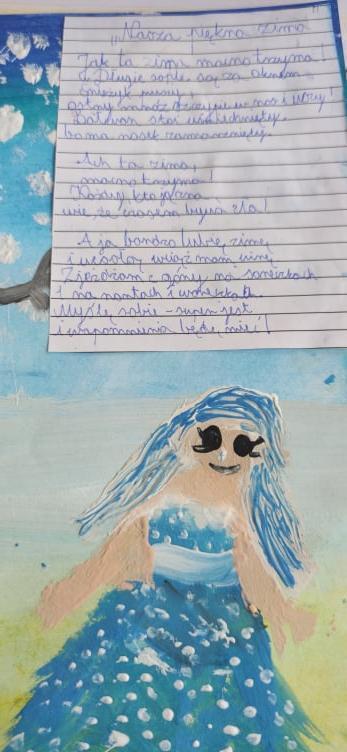 „Nasza piękna zima"
Jak ta zima mocno trzyma!
Długie sople są za oknem
śnieżek pruszy,
ostry mróz szczypie w nos i uszy!
Bałwan stoi uśmiechnięty,
bo ma nosek zamarznięty.
Ach ta zima,
mocno trzyma!
Każdy, kto ją zna
wie, że czasem bywa zła!
A ja bardzo lubię zimę
i wesołą wciąż mam minę
Zjeżdżam z góry na saneczkach
i na nartach i woreczkach.
Myślę sobie - super jest
i wspomnienia będę mieć!